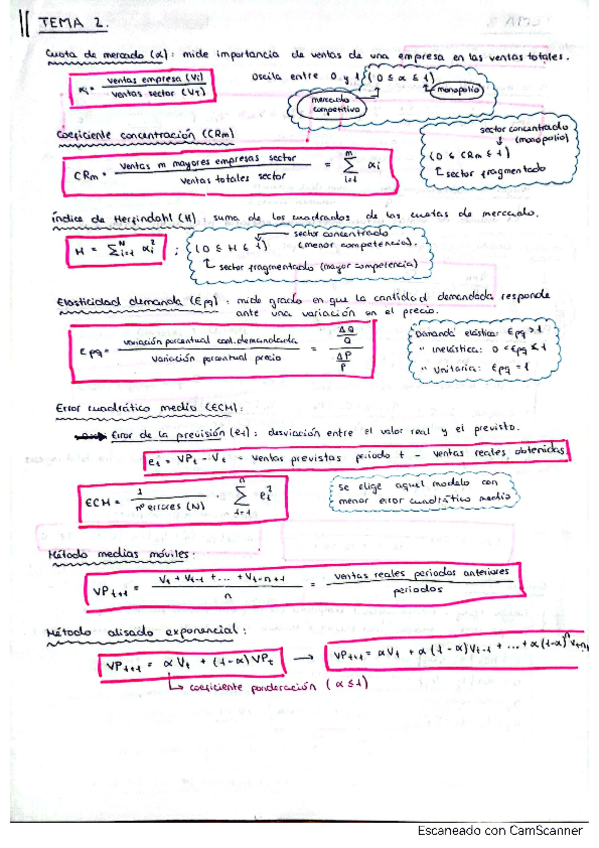 TEMA 2.
Cuota de mercado (α): mide importancia de ventas de una empresa en las ventas totales.
αi = ventas empresa (Vi) / ventas sector (VT)
Oscila entre 0 y 1 (0 ≤ α ≤ 1)
mercado competitivo
monopolio
Coeficiente concentración (CRm)
CRm = ventas m mayores empresas sector / ventas totales sector = Σ αi
sector concentrado
(monopolio)
(0 ≤ CRm ≤ 1)
sector fragmentado
Índice de Herfindahl (H): suma de los cuadrados de las cuotas de mercado.
H = Σ i=1 N αi² ; (0 ≤ H ≤ 1)
sector concentrado
(menor competencia).
sector fragmentado (mayor competencia)
Elasticidad demanda (Epq): mide grado en que la cantidad demandada responde
ante una variación en el precio.
Epq = variación porcentual cant. demandada / variación porcentual precio = ΔQ/Q / ΔP/P
Demanda elástica: Epq > 1
" inelástica: 0 < Epq ≤ 1
" unitaria: Epq = 1
Error cuadrático medio (ECM):
Error de la previsión (et): desviación entre el valor real y el previsto.
et = VPt - Vt = ventas previstas periodo t - ventas reales obtenidas
ECM = 1 / nº errores (N) · Σ et²
se elige aquel modelo con
menor error cuadrático medio
Método medias móviles:
VPt+1 = Vt + Vt-1 + ... + Vt-n+1 / n = ventas reales periodos anteriores / periodos
Método alisado exponencial:
VPt+1 = αVt + (1-α) VPt → VPt+1 = αVt + α(1-α)Vt-1 + ... + α(1-α)ⁿ
coeficiente ponderación (α ≤ 1)
Escaneado con CamScanner